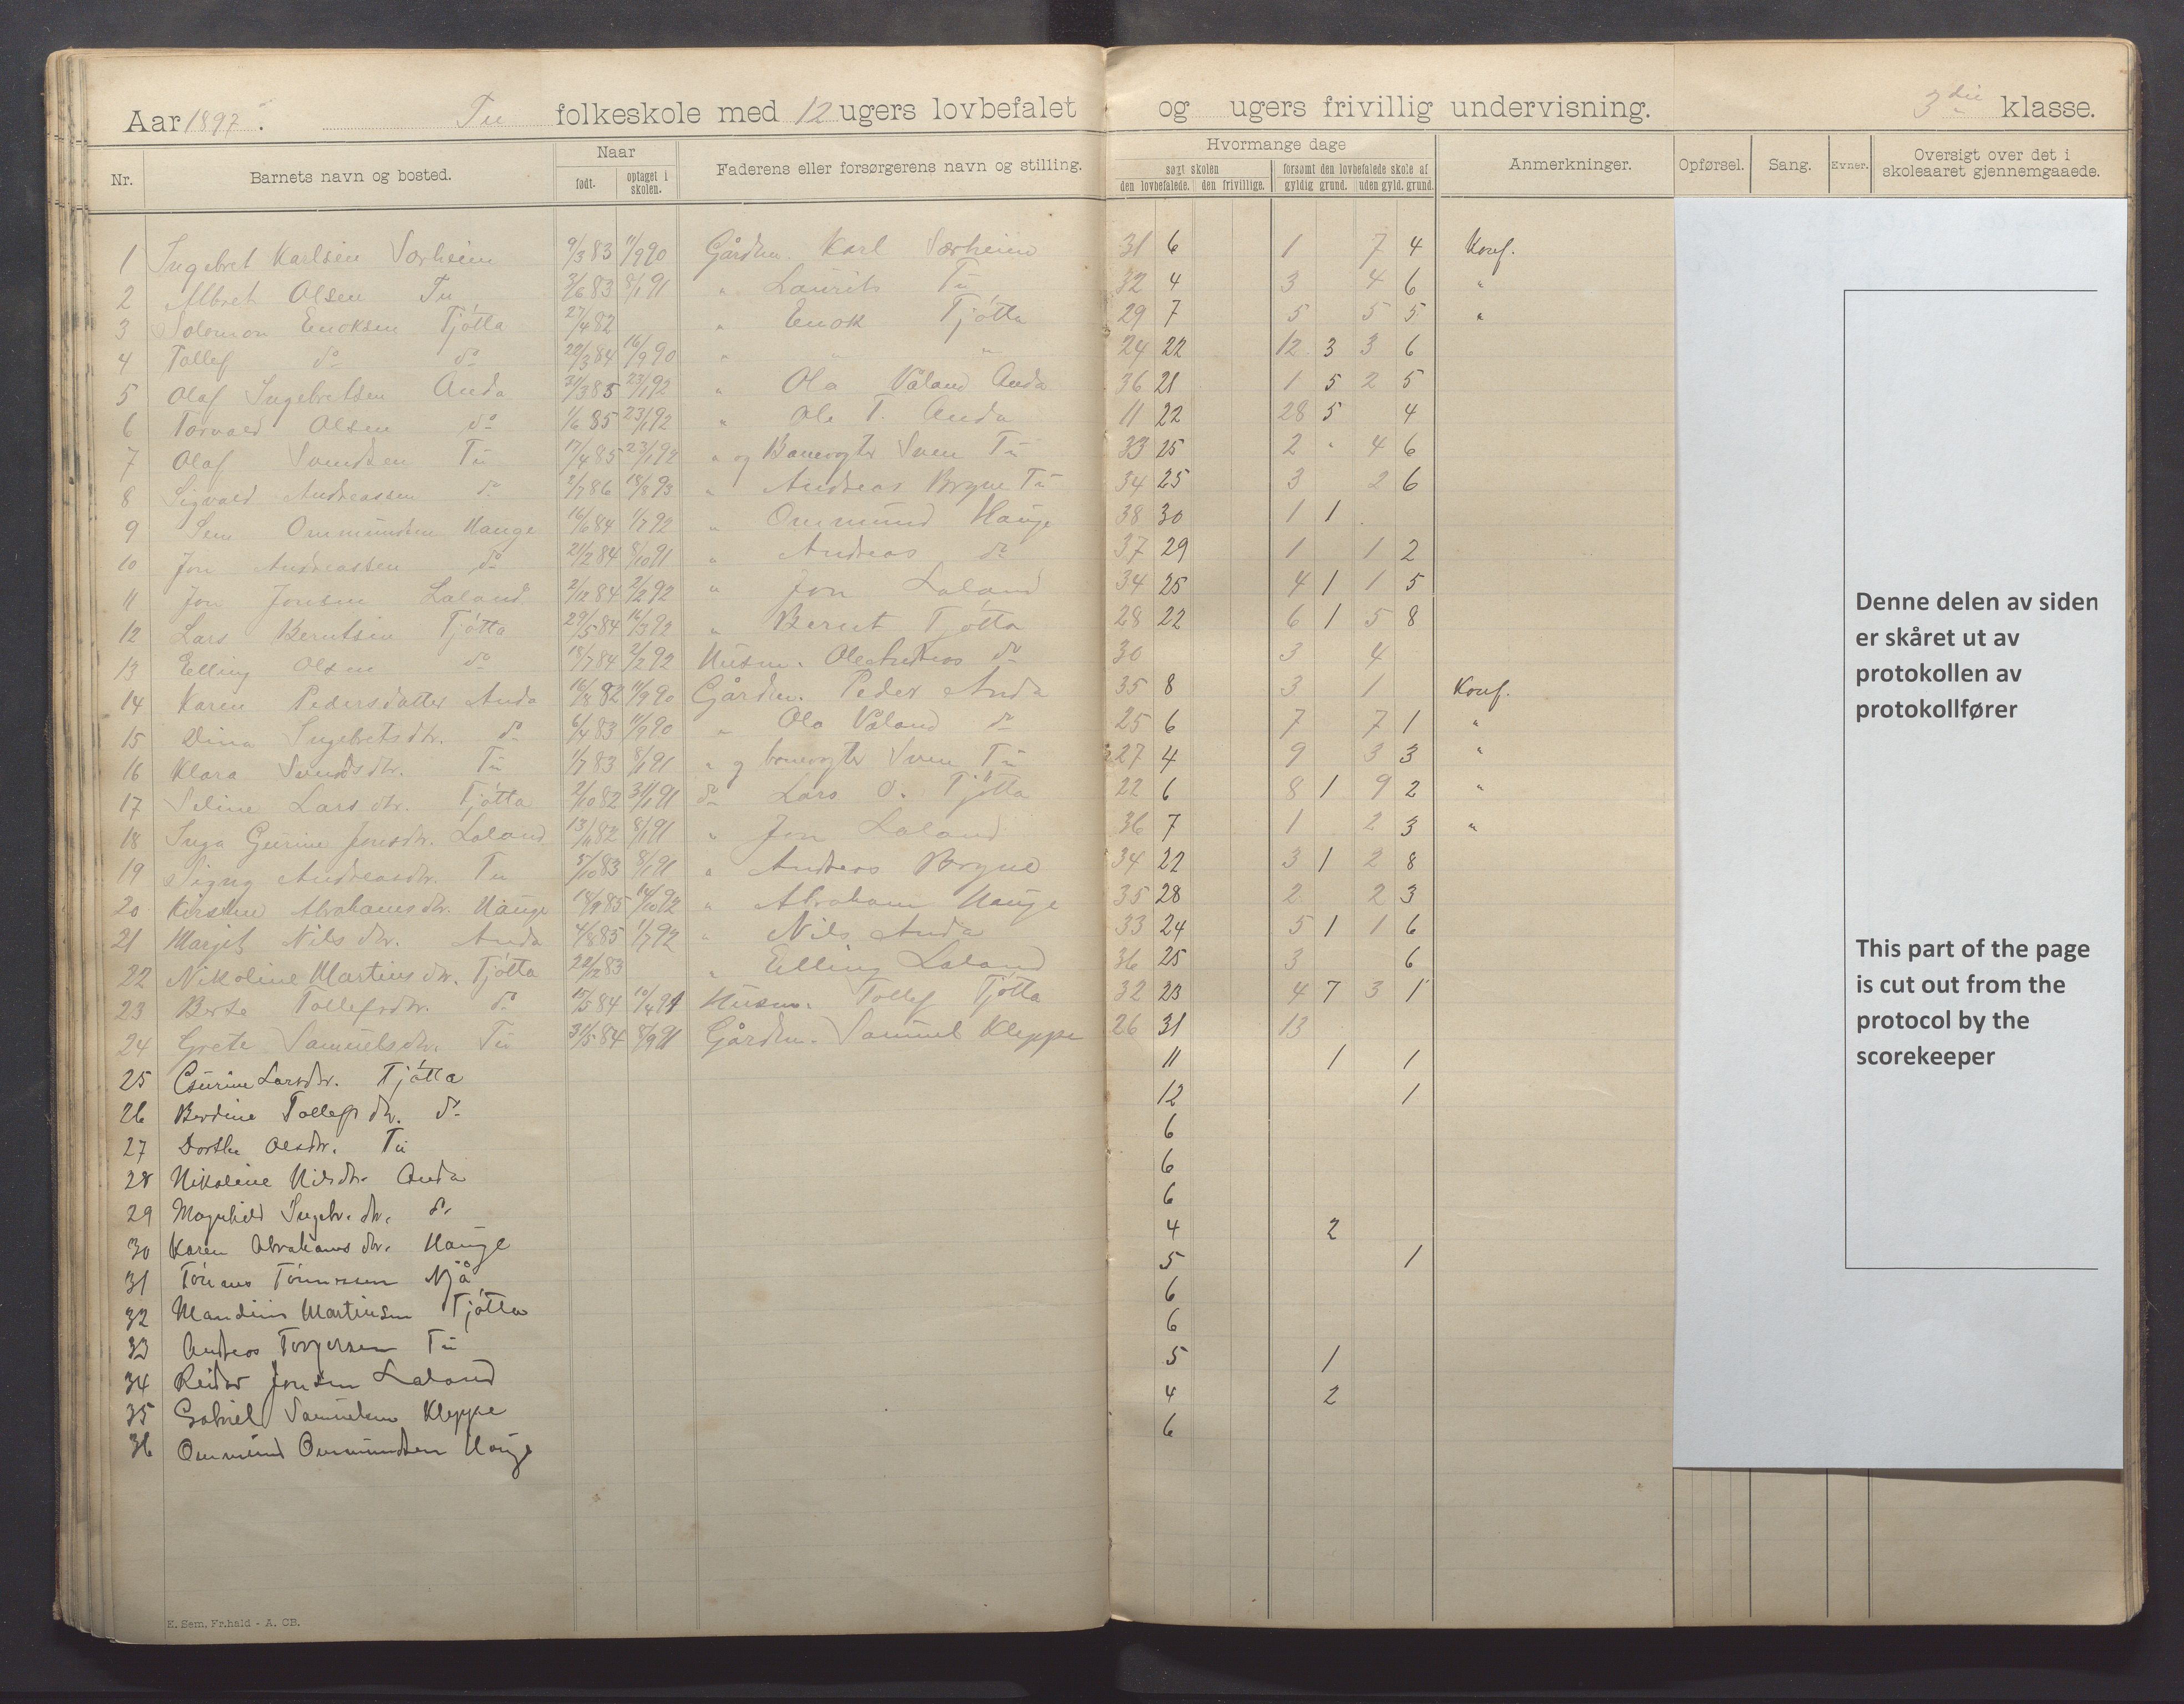 Aar 1897. Tu folkeskole med 12 ugers lovbefalet og ugers frivillig undervisning. 3die klasse.
Nr. Barnets navn og bosted. Naar født. optaget i skolen. Faderens eller forsørgerens navn og stilling. Hvormange dage søgt skolen den lovbefalede. den frivillige. forsømt den lovbefalede skole af gyldig grund. uden gyld. grund. Anmerkninger. Opførsel. Sang. Evner. Oversigt over det i skoleaaret gjennemgaaede.
1 Ingebret Karlsen Særheim 9/3 83 11/9 90 Gårdm. Karl Særheim 31 6 1 7 4 Konf.
2 Albret Olsen Tu 3/6 83 8/1 91 " Laurits Tu 32 4 3 4 6 "
3 Solemon Enoksen Tjøtta 27/4 82 " Enok Tjøtta 29 7 5 5 5 "
4 Tollef do do 22/3 84 16/9 90 " " " 24 22 12 3 3 6
5 Olaf Ingebretsen Anda 30/3 85 23/1 92 " Ola Våland Anda 36 21 1 5 2 5
6 Torvald Olsen do 1/6 85 23/1 92 " Ole T. Anda 11 22 28 5 4
7 Olaf Svendsen Tu 17/4 85 23/1 92 " og Banevogter Sven Tu 33 25 2 " 4 6
8 Sigvald Andreassen do 2/7 86 18/8 93 " Andreas Bryne Tu 34 25 3 2 6
9 Sem Ommundsen Hauge 16/6 84 1/7 92 " Ommund Hauge 38 30 1 1
10 Jon Andreassen do 21/2 84 8/10 91 " Andreas do 37 29 1 1 2
11 Jon Jonsen Laland 2/12 84 2/2 92 " Jon Laland 34 25 4 1 1 5
12 Lars Berntsen Tjøtta 29/5 84 16/3 92 " Bernt Tjøtta 28 22 6 1 5 8
13 Elling Olsen do 18/7 84 2/2 92 Husm. Ole Andreas do 30 3 4
14 Karen Pedersdatter Anda 16/11 82 11/9 90 Gårdm. Peder Anda 35 8 3 1 Konf.
15 Dina Ingebretsdtr. do 6/4 83 11/9 90 " Ola Våland do 25 6 7 7 1 "
16 Klara Svendsdtr. Tu 1/7 83 8/1 91 " og banevogter Sven Tu 27 4 9 3 3 "
17 Seline Larsdtr. Tjøtta 2/10 82 31/1 91 do Lars O. Tjøtta 22 6 8 1 9 2 "
18 Inga Gurine Jonsdr. Laland 13/11 82 8/1 91 " Jon Laland 36 7 1 2 3 "
19 Signy Andreasdtr. Tu 5/10 83 8/1 91 " Andreas Bryne 34 22 3 1 2 8
20 Kirstine Abrahamsdtr. Hauge 18/9 85 14/10 92 " Abraham Hauge 35 28 2 2 3
21 Marjit Nilsdtr. Anda 4/8 85 1/7 92 " Nils Anda 33 24 5 1 1 6
22 Nikoline Martinsdtr. Tjøtta 22/2 83 " Elling Laland 36 25 3 6
23 Berte Tollefsdtr. do 15/5 84 10/4 91 Husm. Tollef Tjøtta 32 23 4 7 3 1
24 Grete Samuelsdtr. Tu 31/5 84 8/9 91 Gårdm. Samuel Kleppe 26 31 13
25 Gurine Larsdtr. Tjøtta 11 1 1
26 Berdine Tollefsdtr. do 12 1
27 Dorthe Olesdtr. Tu 6
28 Nikoline Nilsdtr. Anda 6
29 Magnhild Ingebr.dtr. do 6
30 Karen Abrahamsdtr. Hauge 4 2
31 Tønnes Tønnessen Njå 5 1
32 Mandius Martinsen Tjøtta 6
33 Andreas Torgersen Tu 6
34 Reidar Jonsen Laland 5 1
35 Gabriel Samuelsen Kleppe 4 2
36 Ommund Ommundsen Hauge 6
Denne delen av siden
er skåret ut av
protokollen av
protokollfører
This part of the page
is cut out from the
protocol by the
scorekeeper
E. Sem, Fr.hald - A. CB.